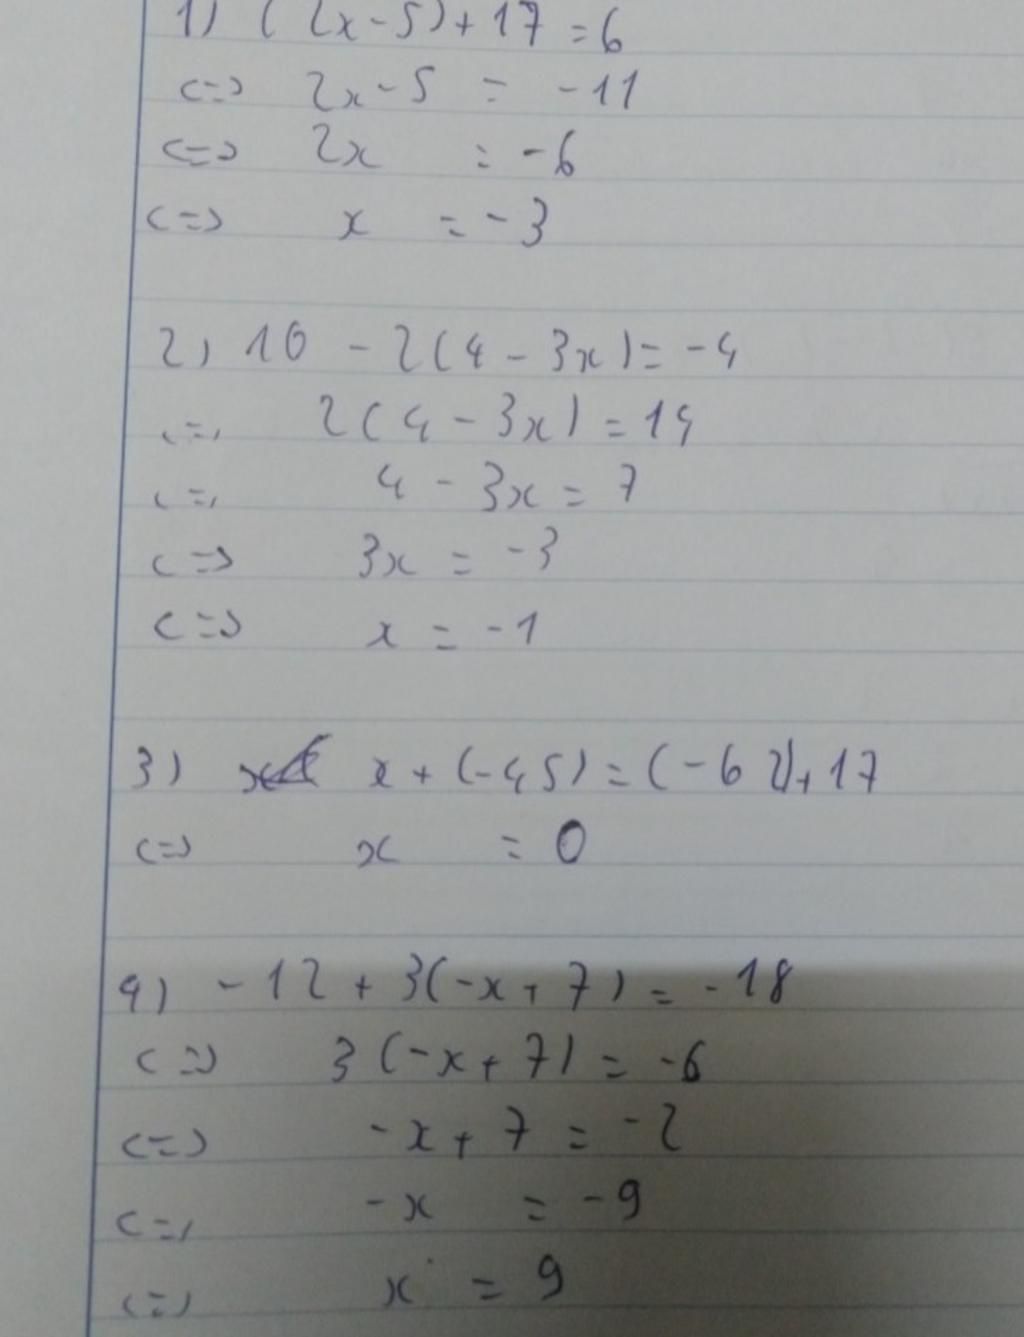 1) (2x-5)+17 = 6
<=> 2x-5 = -11
<=> 2x = -6
<=> x = -3
2) 10 - 2(4 - 3x) = -4
<=> 2(4 - 3x) = 14
<=> 4 - 3x = 7
<=> 3x = -3
<=> x = -1
3) x + (-45) = (-62)+17
<=> x = 0
4) -12 + 3(-x+7) = -18
<=> 3(-x+7) = -6
<=> -x+7 = -2
<=> -x = -9
<=> x = 9